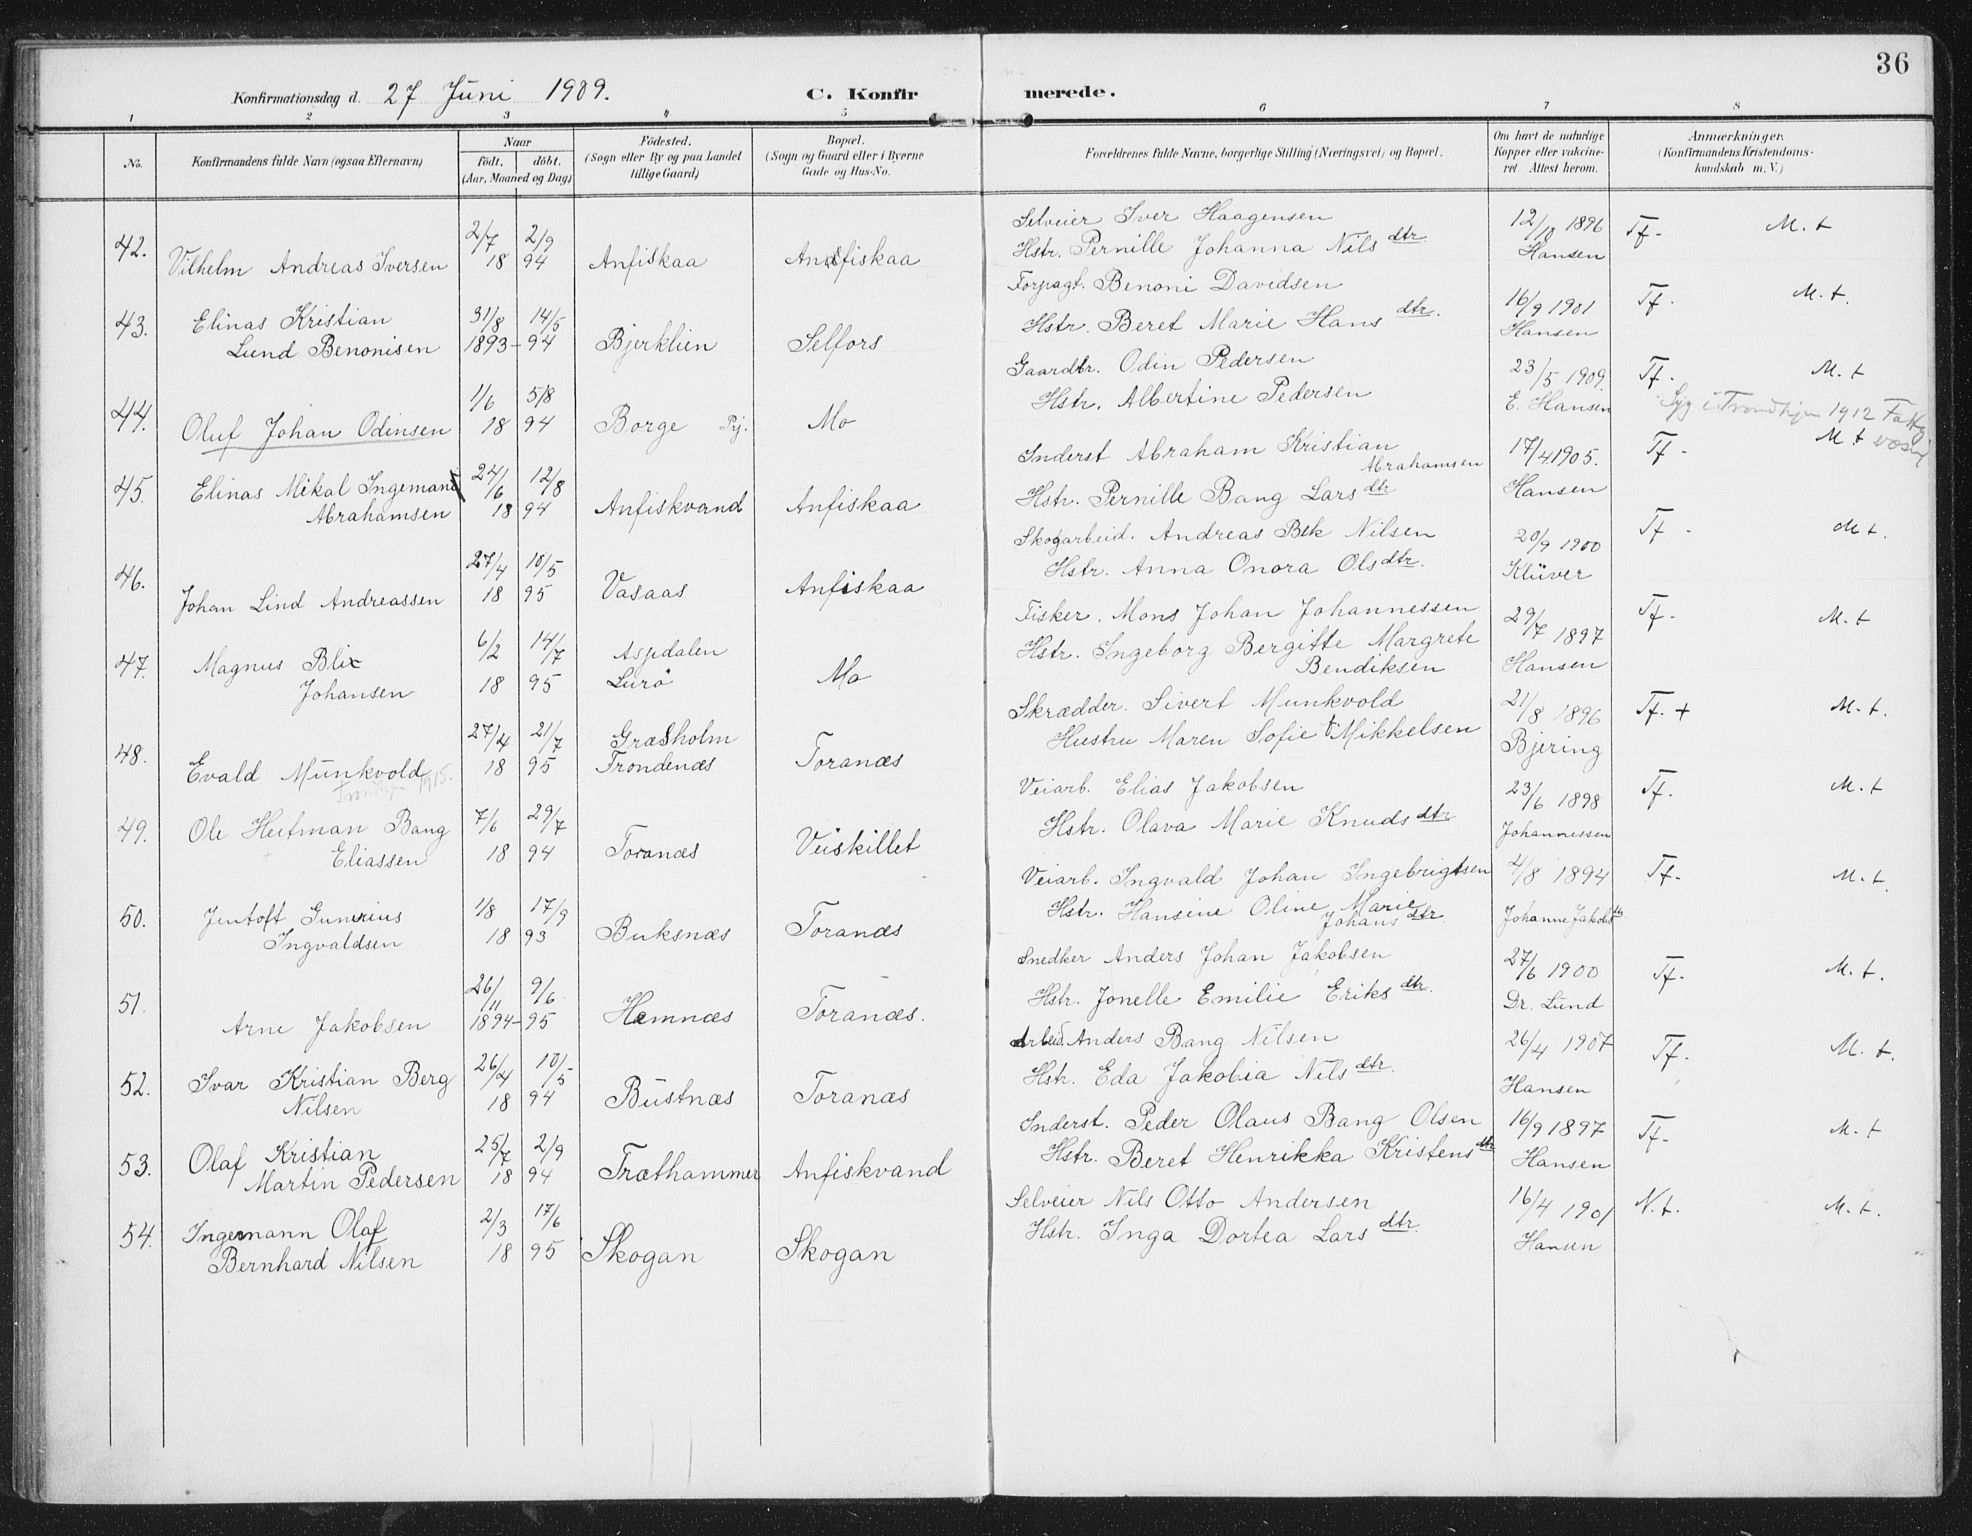 36
Konfirmationsdag d. 27 Juni 1909. C. Konfirmerede.
1 2 3 4 5 6 7 8
No. Konfirmandens fulde Navn (ogsaa Efternavn) Naar födt. döbt. (Aar, Maaned og Dag) Födested. (Sogn eller By og paa Landet tillige Gaard) Bopæl. (Sogn og Gaard eller i Byerne Gade og Hus-No. Forældrenes fulde Navne, borgerlige Stilling (Næringsvei) og Bopæl. Om havt de naturlige Kopper eller vakcineret. Attest herom. Anmærkninger. (Konfirmandens Kristendomskundskab m. V.)
Selveier Iver Haagensen 12/10 1896 Tf. M. t
42. Vilhelm Andreas Iversen 2/7 18 2/9 94 Anfiskaa Anfiskaa Hstr. Pernille Johanna Nilsdtr. Hansen
Forpagt. Benoni Davidsen 16/9 1901 Tf. M. t.
43. Elinas Kristian 31/8 14/5 Hstr. Beret Marie Hansdtr. Hansen
Lund Benonisen 1893 - 94 Bjerklien Selfors
Gaardbr. Odin Pedersen 23/5 1909. Tf. M. t
44. Oluf Johan Odinsen 1/6 18 5/8 94 Borge Pj. Mo Hstr. Albertine Pedersen E. Hansen Syg i Trondhjem 1912 Fattigvæsen
Inderst Abraham Kristian Abrahamsen 17/4 1905. Tf. M t
45. Elinas Mikal Ingeman 24/6 12/8 Hstr. Pernille Bang Larsdtr Hansen
Abrahamsen 18 94 Anfiskvand Anfiskaa
Skogarbeid. Andreas Bek Nilsen 20/9 1900 Tf. M t.
46. Johan Lind Andreassen 27/4 18 10/5 95 Vasaas Anfiskaa Hstr. Anna Onora Olsdtr. Klüver
Fisker. Mons Johan Johannessen 29/7 1897 Tf. M. t
47. Magnus Blix 6/2 14/7 Aspdalen Hstr. Ingeborg Bergitte Margrete Bendiksen Hansen
Johansen 18 95 Lurö Mo
Skrædder. Sivert Munkvold 21/8 1896 Tf. + M. t.
48. Evald Munkvold 27/4 18 21/7 95 Græsholm Trondenæs Toranæs Hustru Maren Sofie Mikkelsen Bjering
Trondhjem 1915.
Veiarb. Elias Jakobsen 23/6 1898 Tf. M. t
49. Ole Heitman Bang 7/6 29/7 Hstr. Olava Marie Knudsdtr Johannessen
Eliassen 18 94 Toranæs Veiskillet
Veiarb. Ingvald Johan Ingebrigtsen 4/8 1894 Tf. M. t.
50. Jentoft Gunerius 1/8 17/9 Hstr. Hansine Oline Marie Johansdtr. Johanne Jakobsdtr.
Ingvaldsen 18 93 Buksnæs Toranæs
Snedker Anders Johan Jakobsen 27/6 1900 Tf. M. t.
51. Arne Jakobsen 26/11 1894 - 9/6 95 Hemnæs Toranæs. Hstr. Jonelle Emilie Eriksdtr. Dr. Lund
Arbeid. Anders Bang Nilsen 26/4 1907 Tf. M. t.
52. Ivar Kristian Berg 26/4 10/5 Hstr. Eda Jakobia Nilsdtr. Hansen
Nilsen 18 94 Bustnæs Toranæs
Inderst. Peder Olaus Bang Olsen 16/9 1897 Tf. M. t
53. Olaf Kristian 25/7 2/9 Hstr. Beret Henrikka Kristensdtr Hansen
Martin Pedersen 18 94 Træthammer Anfiskvand
Selveier Nils Otto Andersen 16/4 1901 N. t. M. t.
54. Ingemann Olaf 2/3 17/6 Hstr. Inga Dortea Larsdtr. Hansen
Bernhard Nilsen 18 95 Skogan Skogan